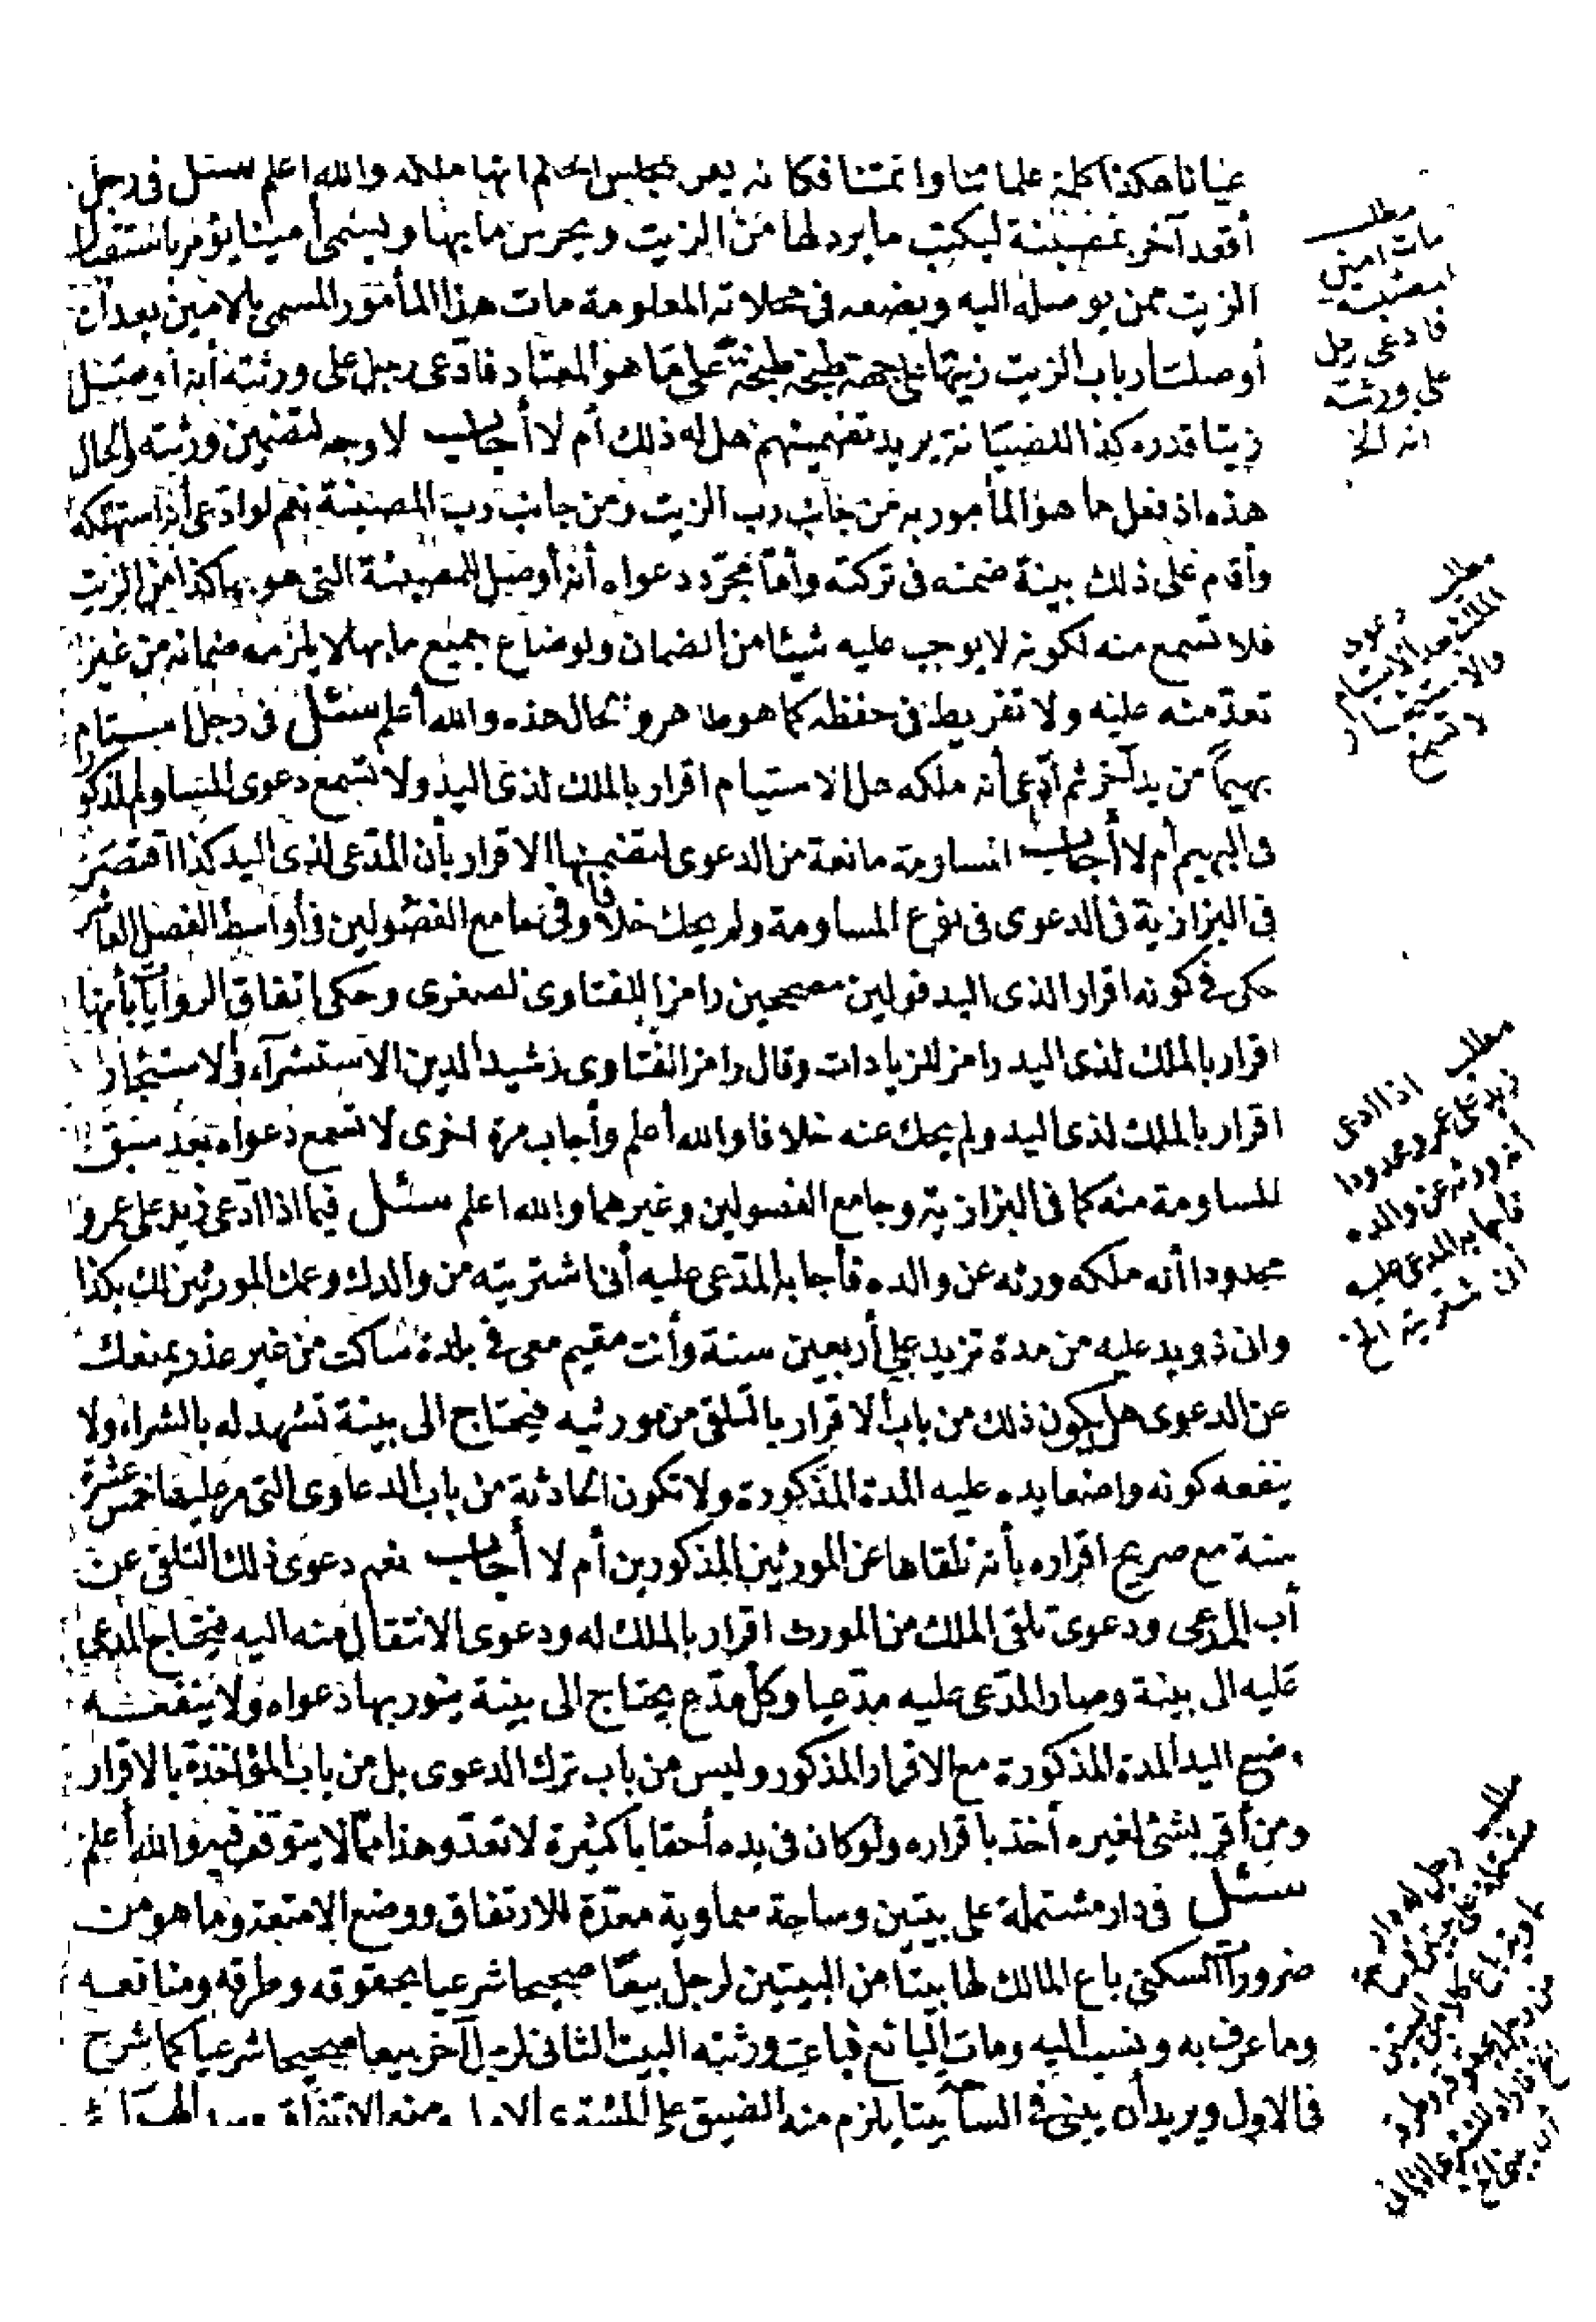 عيانا هكذا كلمة علمائنا وأئمتنا فكأنه يعن مجلس الحكم أنها ملكه والله أعلم سئل فى رجل
أقعد آخر بمصبنة ليكتب ما يرد لها من الزيت ويحرس ما بها ويسمى أمينا يؤمر باستقبال
الزيت ممن يوصله اليه ويضعه فى محلاته المعلومة مات هذا المأمور المسمى بالامين بعد أن
أوصلت أرباب الزيت زيتها على جهة طبخة طبخة على ما هو المعتاد فادعى رجل على ورثته أنه أوصل
زيتا قدره كذا للمصبانة يريد تضمينهم هل له ذلك أم لا أجاب لا وجه لتضمين ورثته والحال
هذه اذ فعل ما هو المأمور به من جانب رب الزيت ومن جانب رب المصبنة نعم لو ادعى أنه استهلكه
وأقام على ذلك بينة ضمنه فى تركته وأما مجرد دعواه أنه أوصل للمصبنة التى هو بها كذا من الزيت
فلا تسمع منه لكونه لا يوجب عليه شيئا من الضمان ولو ضاع جميع ما بها لا يلزمه ضمانه من غير
تعد منه عليه ولا تفريط فى حفظه كما هو ظاهر والحال هذه والله أعلم سئل فى رجل استام
بهيما من يد آخر ثم ادعى أنه ملكه هل الاستيام اقرار بالملك لذى اليد ولا تسمع دعوى المساوم المذكور
فى البهيم أم لا أجاب المساومة مانعة من الدعوى لتضمنها الاقرار بأن المدعى لذى اليد كذا اقتصر
فى البزازية فى الدعوى فى نوع المساومة ولم يحك خلافا وفى جامع الفصولين فى أواسط الفصل العاشر
حكى فى كونه اقرارا لذى اليد قولين مصححين رامزا للفتاوى الصغرى وحكى اتفاق الروايات بأنها
اقرار بالملك لذى اليد رامز للزيادات وقال رامز الفتاوى رشيد الدين الاستشراء والاستئجار
اقرار بالملك لذى اليد ولم يحك عنه خلافا والله أعلم وأجاب مرة اخرى لا تسمع دعواه بعد سبق
المساومة منه كما فى البزازية وجامع الفصولين وغيرهما والله اعلم سئل فيما اذا ادعى زيد على عمرو
محدودا أنه ملكه ورثه عن والده فأجابه المدعى عليه أنى اشتريته من والدك وعمك المورثين لك بكذا
وانى ذو يد عليه من مدة تزيد على أربعين سنة وأنت مقيم معى فى بلدة ساكت من غير عذر يمنعك
عن الدعوى هل يكون ذلك من باب الاقرار بالتلقى من مورثيه فيحتاج الى بينة تشهد له بالشراء ولا
ينفعه كونه واضعا يده عليه المدة المذكورة ولا تكون الحادثة من باب الدعاوى التى مر عليها خمس عشرة
سنة مع صريح اقراره بأنه تلقاها عن المورثين المذكورين أم لا أجاب نعم دعوى ذلك التلقى عن
أب المدعى ودعوى تلقى الملك من المورث اقرار بالملك له ودعوى الانتقال منه اليه فيحتاج المدعى
عليه الى بينة وصار المدعى عليه مدعيا وكل مدع يحتاج الى بينة ينور بها دعواه ولا ينفعه
وضع اليد المدة المذكورة مع الاقرار المذكور وليس من باب ترك الدعوى بل من باب المؤاخذة بالاقرار
ومن أقر بشئ لغيره أخذ باقراره ولو كان فى يده أحقابا كثيرة لا تعد وهذا مما لا يتوقف فيه والله أعلم
سئل فى دار مشتملة على بيتين وساحة سماوية معدة للارتفاق ووضع الامتعة وما هو من
ضرورات السكنى باع المالك لها بيتا من البيتين لرجل بيعا صحيحا شرعيا بحقوقه وطرقه ومنافعه
وما عرف به ونسب اليه ومات البائع فباعت ورثته البيت الثانى لرجل آخر بيعا صحيحا شرعيا كما شرح
فى الاول ويريد أن يبنى فى الساحة بيتا يلزم منه الضيق على المشترى الاول ومنع الارتفاق
مطلب
مات امين
المصبنة
فادعى رجل
على ورثته
انه الخ
مطلب
دعوى
الملك بعد الاستيام
لا تسمع
مطلب
اذا ادعى
زيد على عمرو محدودا
انه ورثه عن والده
فاجابه المدعى عليه
انى اشتريته الخ
مطلب